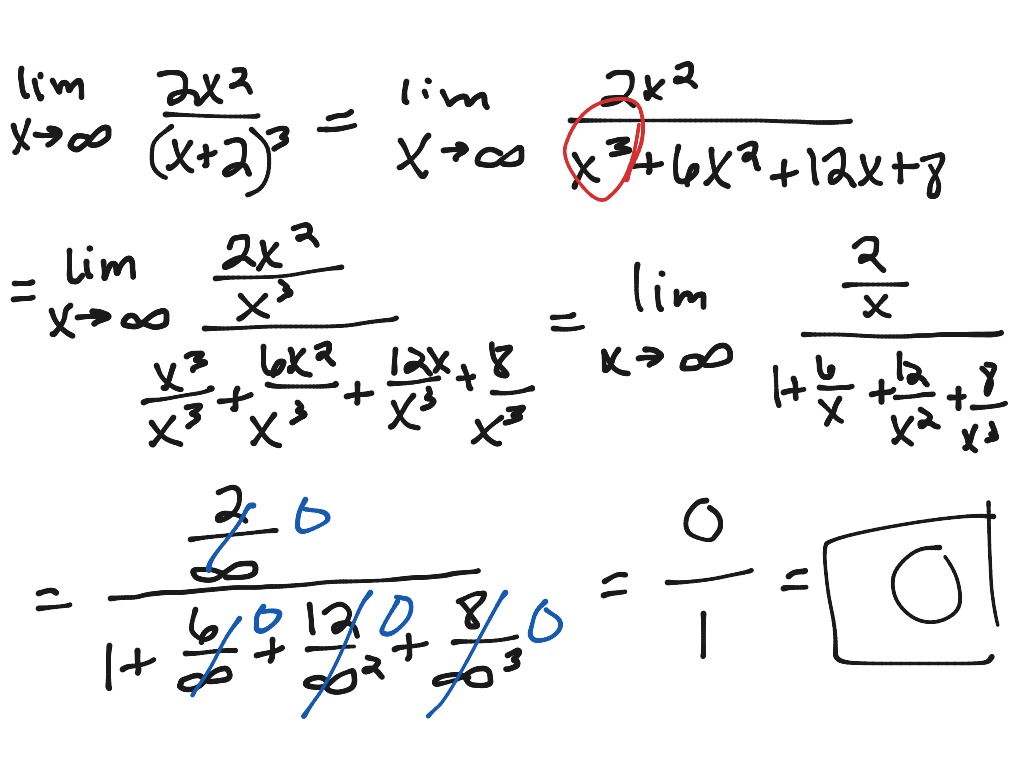 lim x→∞ 2x²/(x+2)³ = lim x→∞ 2x²/(x³+6x²+12x+8)
= lim x→∞ (2x²/x³)/(x³/x³ + 6x²/x³ + 12x/x³ + 8/x³) = lim x→∞ (2/x)/(1 + 6/x + 12/x² + 8/x³)
= (2/∞ 0)/(1 + 6/∞ 0 + 12/∞² 0 + 8/∞³ 0) = 0/1 = 0